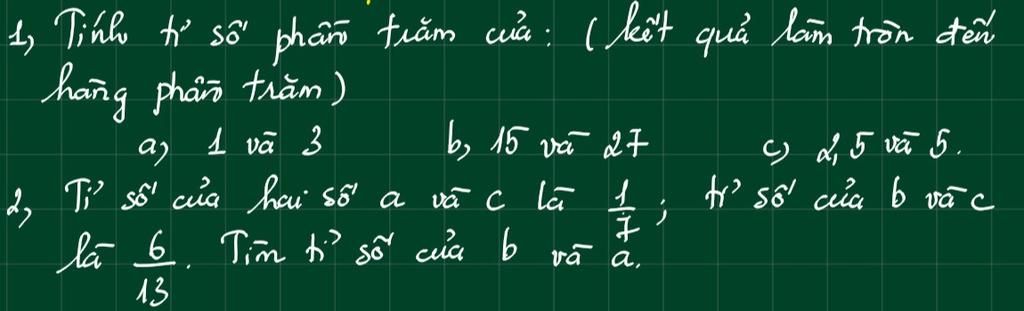 1, Tính tỉ số phần trăm của: (kết quả làm tròn đến
hàng phần trăm)
a, 1 và 3 b, 15 và 27 c, 2,5 và 5.
2, Tỉ số của hai số a và c là 1/7; tỉ số của b và c
là 6/13. Tìm tỉ số của b và a.